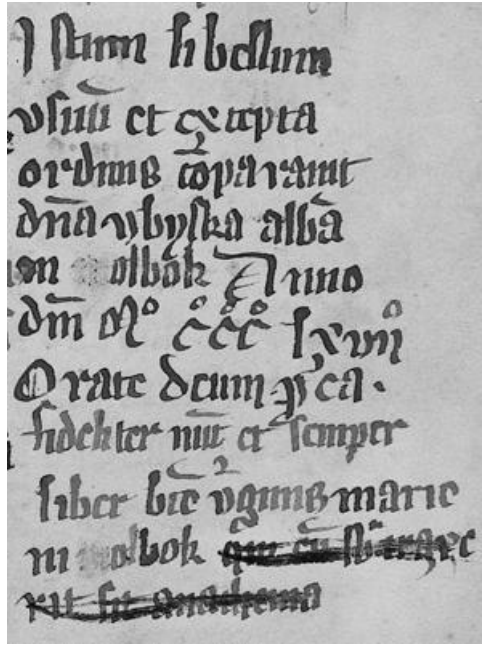 Istum libellum
usuu et excepta
ordinis cōparauit
dn̄a ybyska albā
on olbok Anno
dm̄ Mº cºcºcº lxvij
Orate deum p ea.
fideliter nūc et semper
liber btē v̄ginis marie
in olbok qui eū abrage
rit sit anathema